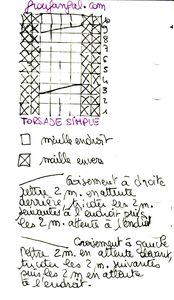 faufanfal.com
10
9
8
7
6
5
4
3
2
1
TORSADE SIMPLE
maille endroit
maille envers
Croisement à droite
mettre 2 m. en attente
derrière, tricoter les 2 m.
suivantes à l'endroit puis
les 2 m. attente à l'endroit
Croisement à gauche
Mettre 2 m. en attente devant,
tricoter les 2 m. suivantes
puis les 2 m en attente
à l'endroit.